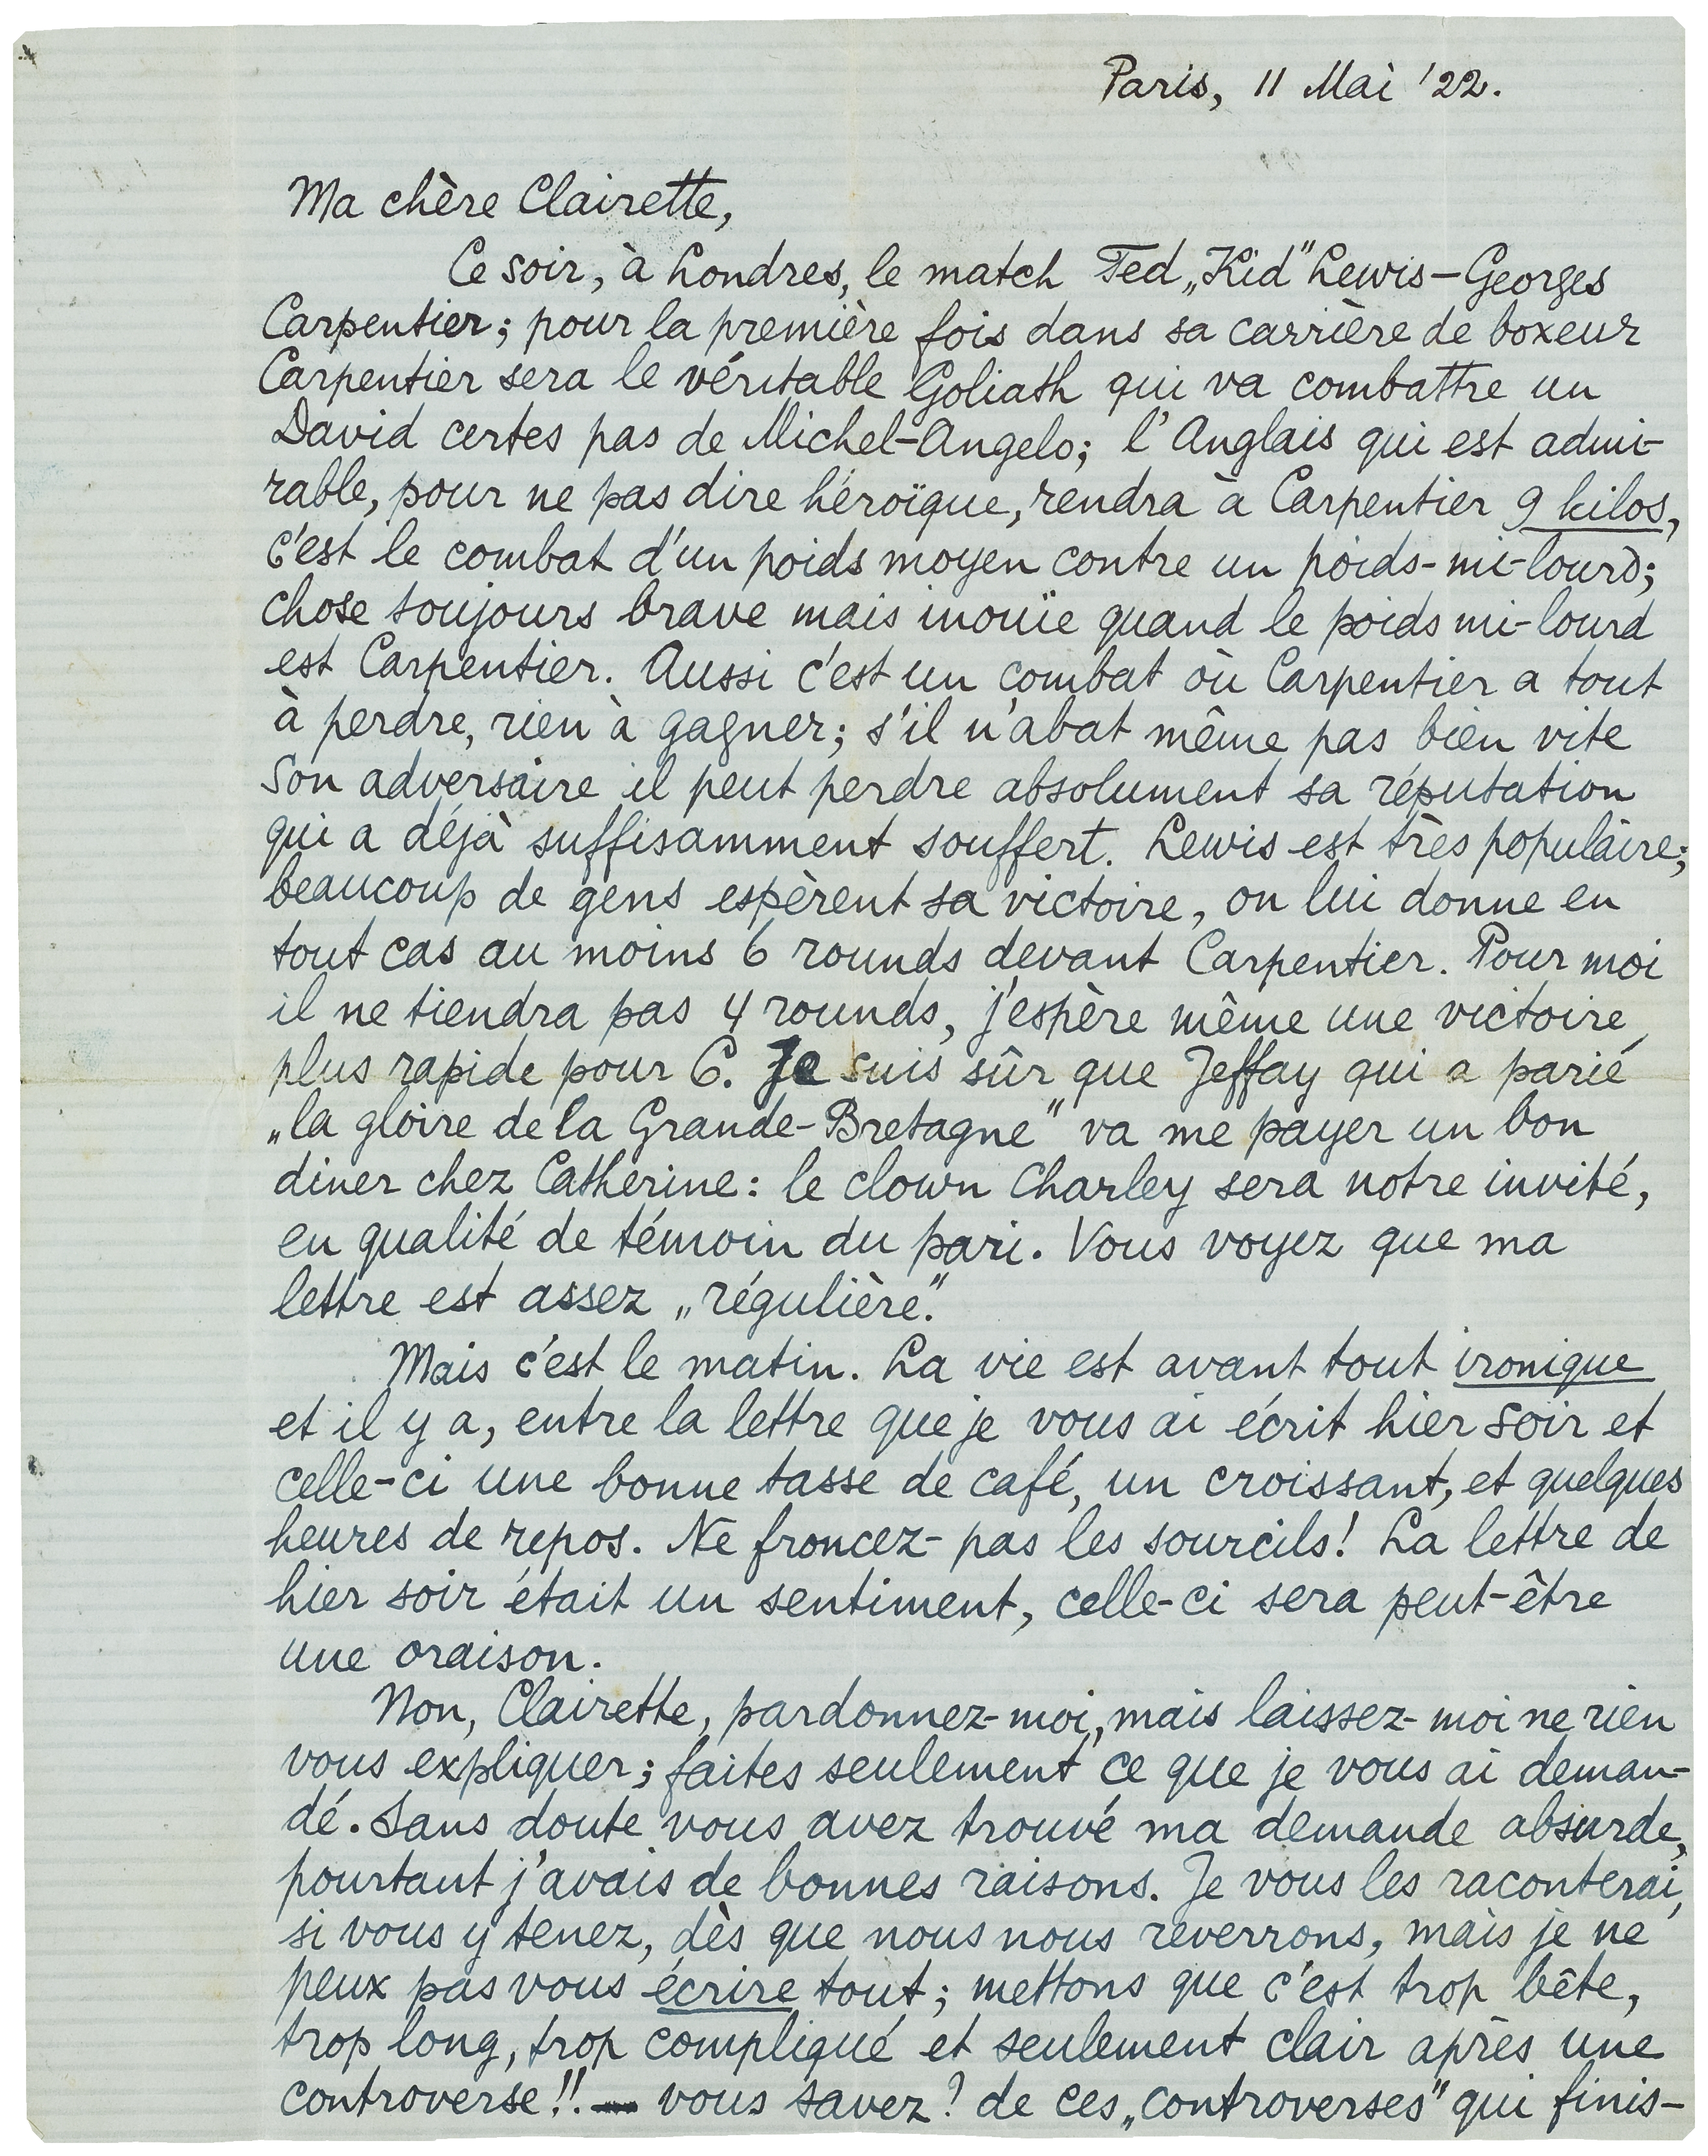 Paris, 11 Mai '22.
Ma chère Clairette,
Ce soir, à Londres, le match Ted „Kid" Lewis – Georges
Carpentier; pour la première fois dans sa carrière de boxeur
Carpentier sera le véritable Goliath qui va combattre un
David certes pas de Michel-Angelo; l'Anglais qui est admi-
rable, pour ne pas dire héroïque, rendra à Carpentier 9 kilos,
c'est le combat d'un poids moyen contre un poids-mi-lourd;
chose toujours brave mais inouïe quand le poids mi-lourd
est Carpentier. Aussi c'est un combat où Carpentier a tout
à perdre, rien à gagner; s'il n'abat même pas bien vite
son adversaire il peut perdre absolument sa réputation
qui a déjà suffisamment souffert. Lewis est très populaire;
beaucoup de gens espèrent sa victoire, on lui donne en
tout cas au moins 6 rounds devant Carpentier. Pour moi
il ne tiendra pas 4 rounds, j'espère même une victoire
plus rapide pour C. Je suis sûr que Jeffay qui a parié
„la gloire de la Grande-Bretagne" va me payer un bon
diner chez Catherine: le clown Charley sera notre invité,
en qualité de témoin du pari. Vous voyez que ma
lettre est assez „régulière".
Mais c'est le matin. La vie est avant tout ironique
et il y a, entre la lettre que je vous ai écrit hier soir et
celle-ci une bonne tasse de café, un croissant, et quelques
heures de repos. Ne froncez-pas les sourcils! La lettre de
hier soir était un sentiment, celle-ci sera peut-être
une oraison.
Non, Clairette, pardonnez-moi, mais laissez-moi ne rien
vous expliquer; faites seulement ce que je vous ai deman-
dé. Sans doute vous avez trouvé ma demande absurde,
pourtant j'avais de bonnes raisons. Je vous les raconterai,
si vous y tenez, dès que nous nous reverrons, mais je ne
peux pas vous écrire tout; mettons que c'est trop bête,
trop long, trop compliqué et seulement clair après une
controverse!! — vous savez? de ces „controverses" qui finis-